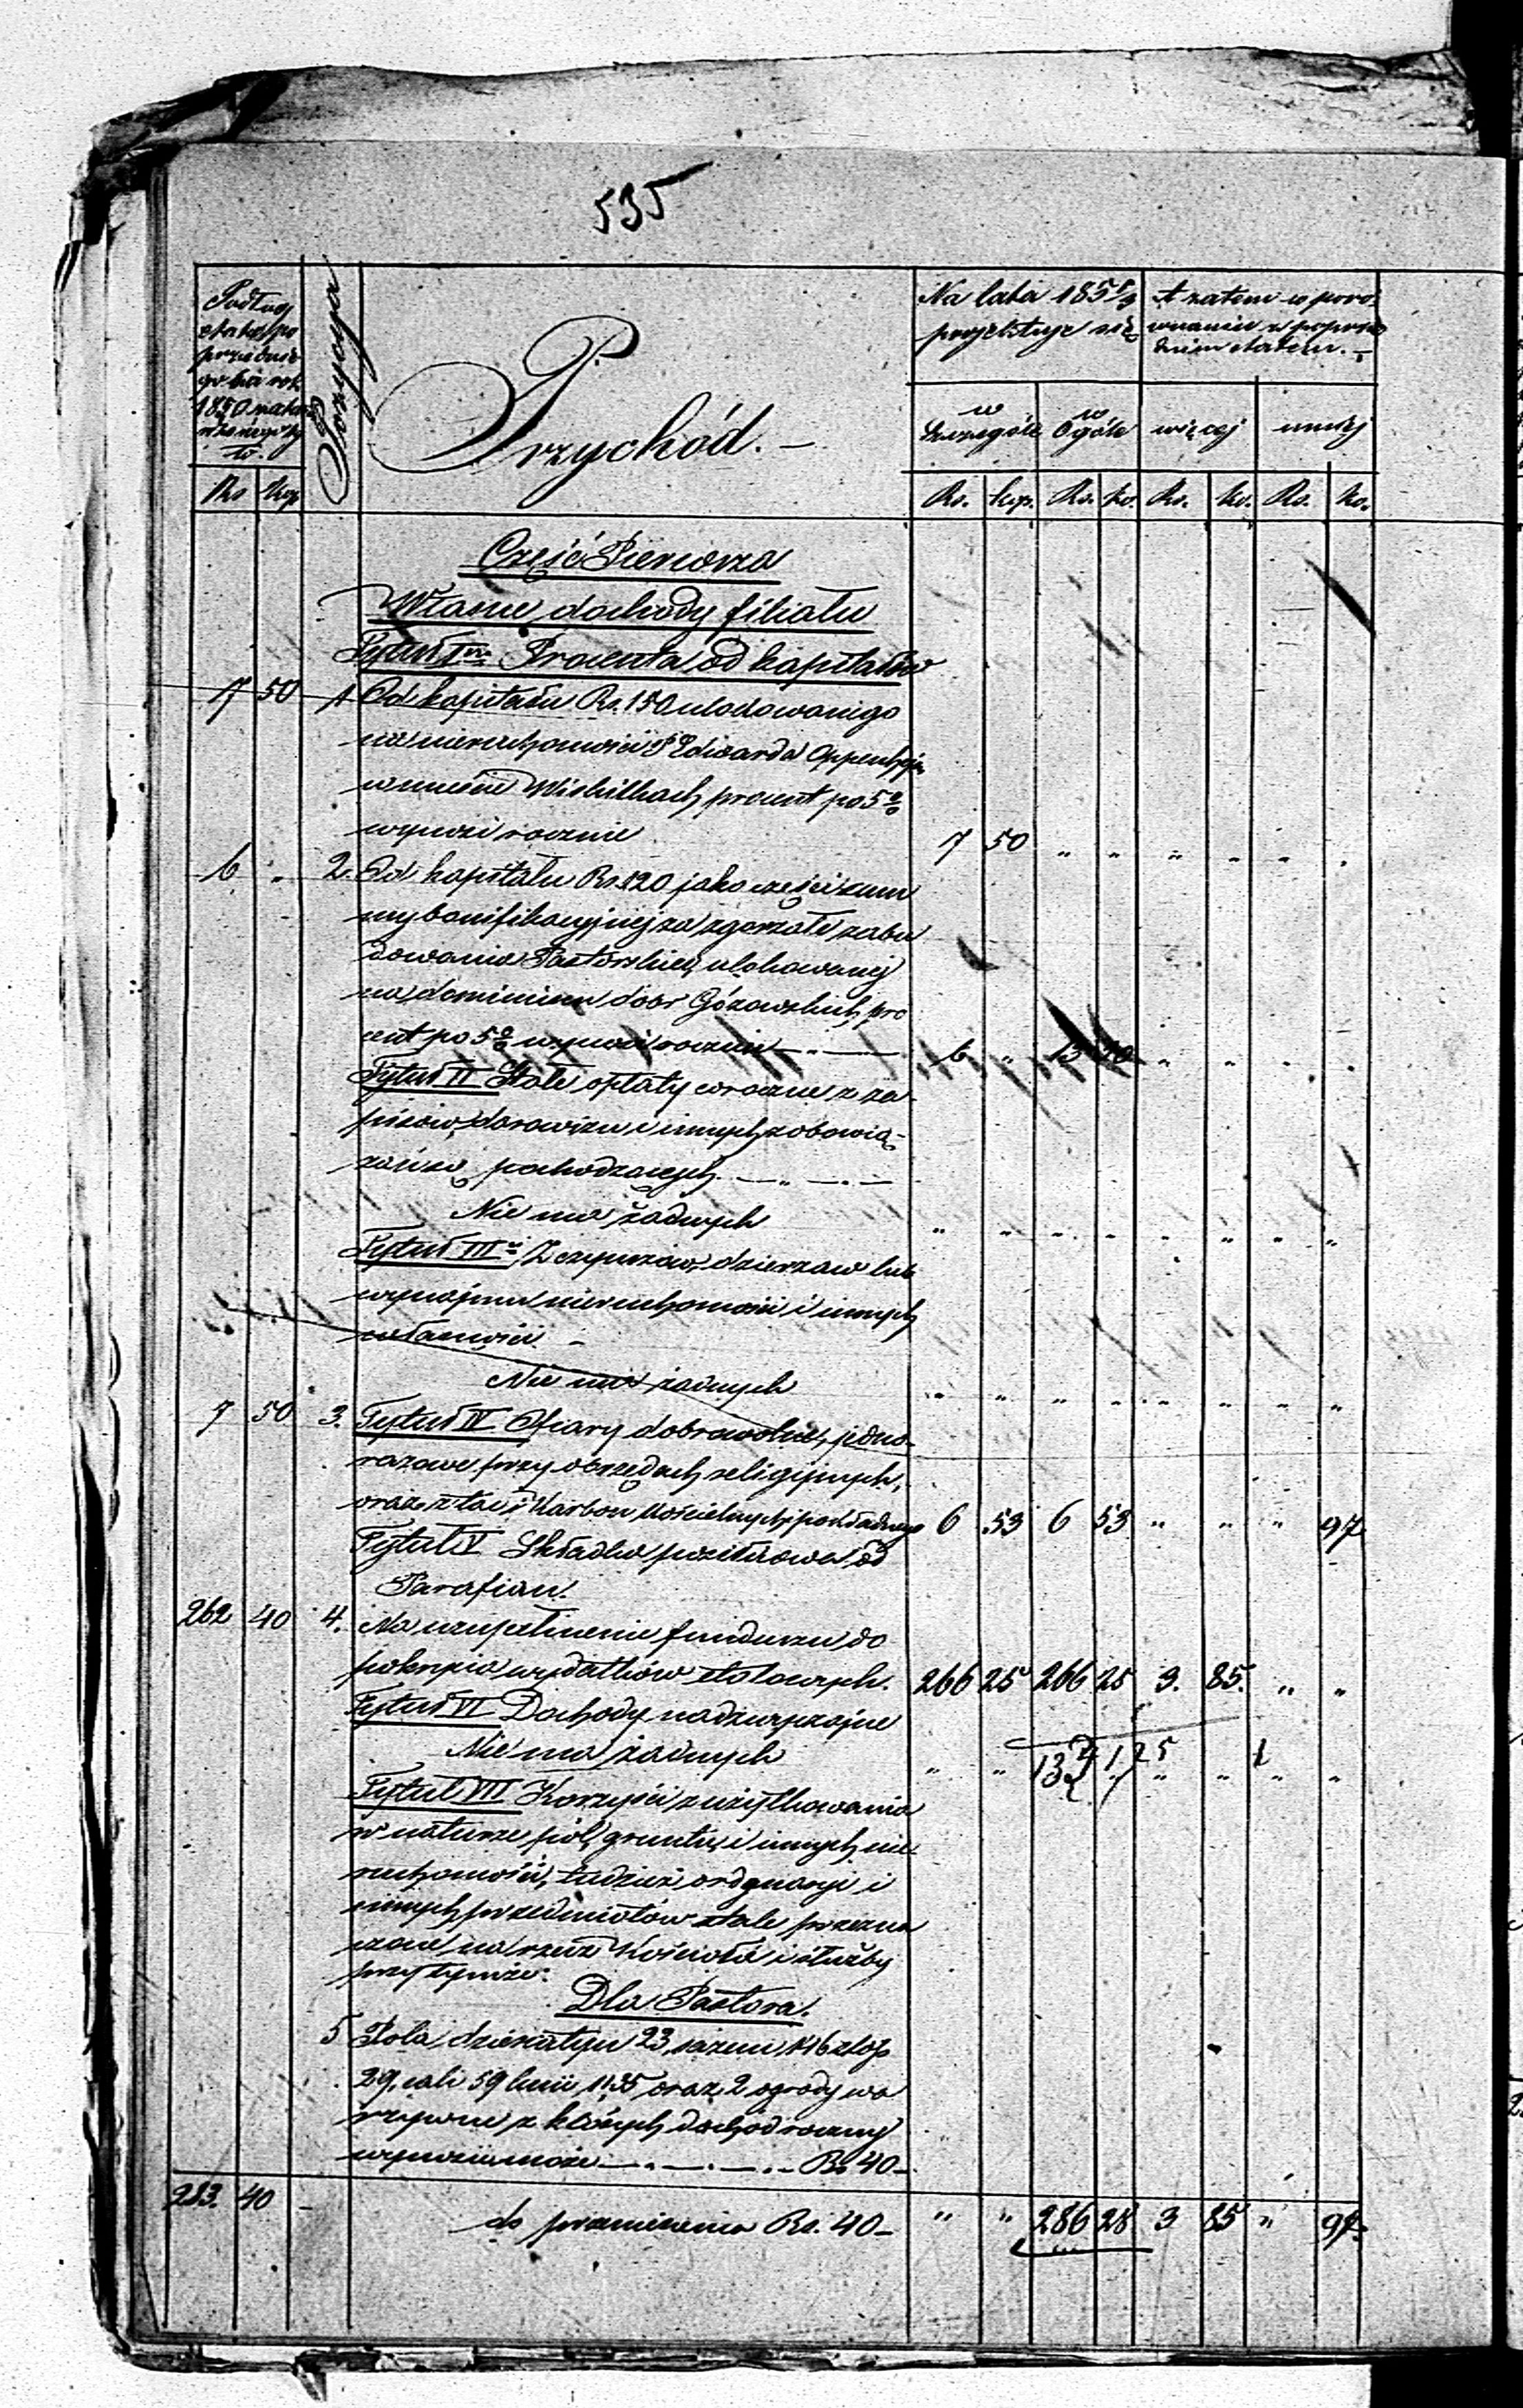 535
Podług
etatu po
przednie
go na rok
1850
Pozycya
Przychód. –
Na lata 185 1/3
projektuje się
A zatem w poró
wnaniu z poprze
dnim etatem. –
w
szczególe
w
Ogóle
więcej
mniej
Rs kop
Rs. kop. Rs. ko. Rs. ko. Rs. ko.
Część Pierwsza
Własne dochody filiału
Tytuł I Procenta od kapitałów
7 50 1 Od kapitału Rs. 150 ulokowanego
na nieruchomości P Edwarda Oppenhejm
w mieście Wiskitkach procent po 5%
wynosi rocznie 7 50 " " " " " "
6 " 2. Od kapitału Rs. 120 jako części sum
my bonifikacyjnej za zgorzałe zabu
dowania Pastorskie, ulokowanej
na dominium dóbr Guzowskich, pro
cent po 5% wynosi rocznie 6 " 13 50 " " " "
Tytuł II Stałe opłaty coroczne z za-
pisów, darowizn i innych zobowią-
zań pochodzących.
Nie ma żadnych " " " " " " " "
Tytuł III Z czynszów, dzierzaw lub
wynajmu nieruchomości i innych
własności. –
Nie ma żadnych " " " " " " " "
7 50 3. Tytuł IV Ofiary dobrowolne, jedno-
razowe przy obrzędach religijnych,
oraz z tac i Karbon Kościelnych i pokładnego 6 53 6 53 " " " 97
Tytuł V Składka pozitkowa od
Parafian.
262 40 4. Na uzupełnienie funduszu do
pokrycia wydatków etatowych. 266 25 266 25 3. 85. " "
Tytuł VI Dochody nadzwyczajne
Nie ma żadnych " " " " " "
Tytuł VII Korzyści z użytkowania
w naturze pól, gruntu, i innych nie
ruchomości, tudzież ordynaryi i
innych przedmiotów stale przezna
czone na rzecz Kościoła i służby
przy tymże:
Dla Pastora.
5 Pola, dziesiatyn 23, sążni 1416 stóp
29, cali 59 linii 11,35 oraz 2 ogrody wa
rzywne z których dochód roczny
wynosić może Rs 40 –
283. 40 – do przeniesienia Rs. 40 – " " 286 28 3 85 " 97